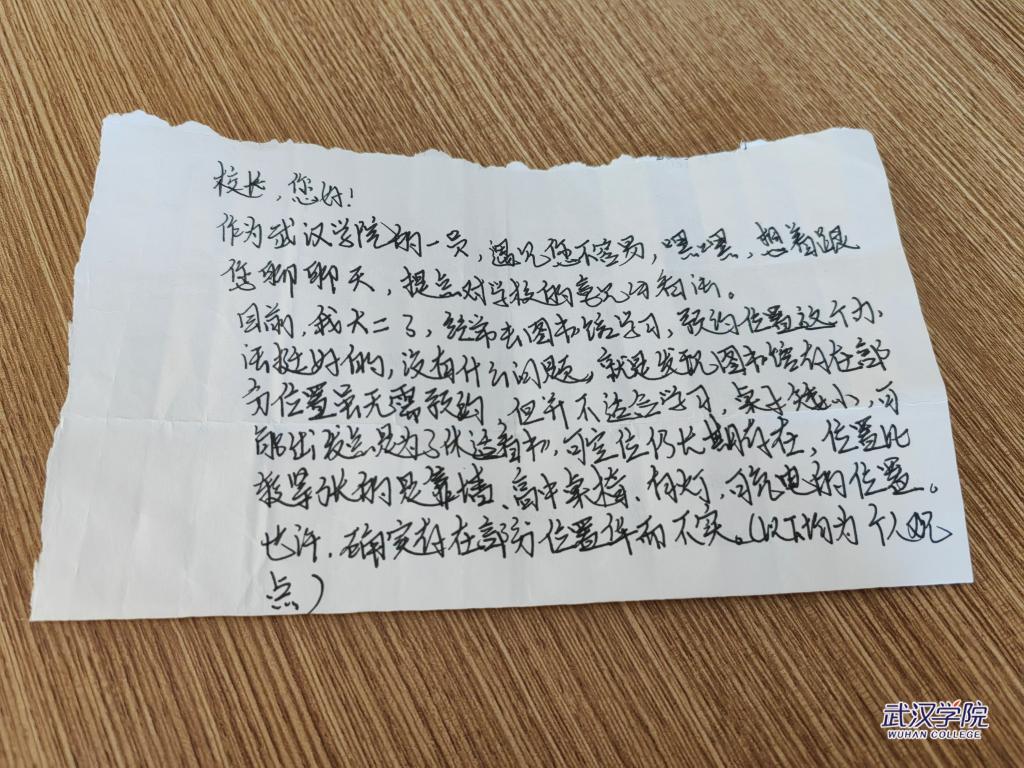 校长，您好！
作为武汉学院的一员，遇见您不容易，嘿嘿，想着跟
您聊聊天，提点对学校的意见和看法。
目前，我大二了，经常去图书馆学习，预约位置这个办
法挺好的，没有什么问题。就是发现图书馆存在部
分位置虽无需预约 但并不适合学习，桌子矮小，可
能出发点是为了休适看书，可空位仍长期存在，位置比
较紧张的是靠墙、高中桌椅、有灯、可充电的位置。
也许，确实存在部分位置华而不实。（以上均为个人观
点）
武汉学院
WUHAN COLLEGE